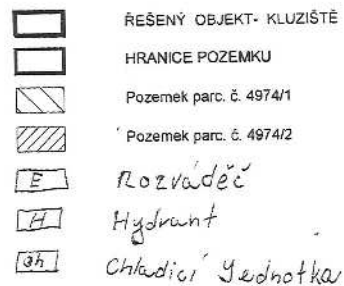 ŘEŠENÝ OBJEKT- KLUZIŠTĚ
HRANICE POZEMKU
Pozemek parc. č. 4974/1
Pozemek parc. č. 4974/2
E Rozváděč
H Hydrant
Ch Chladící Jednotka